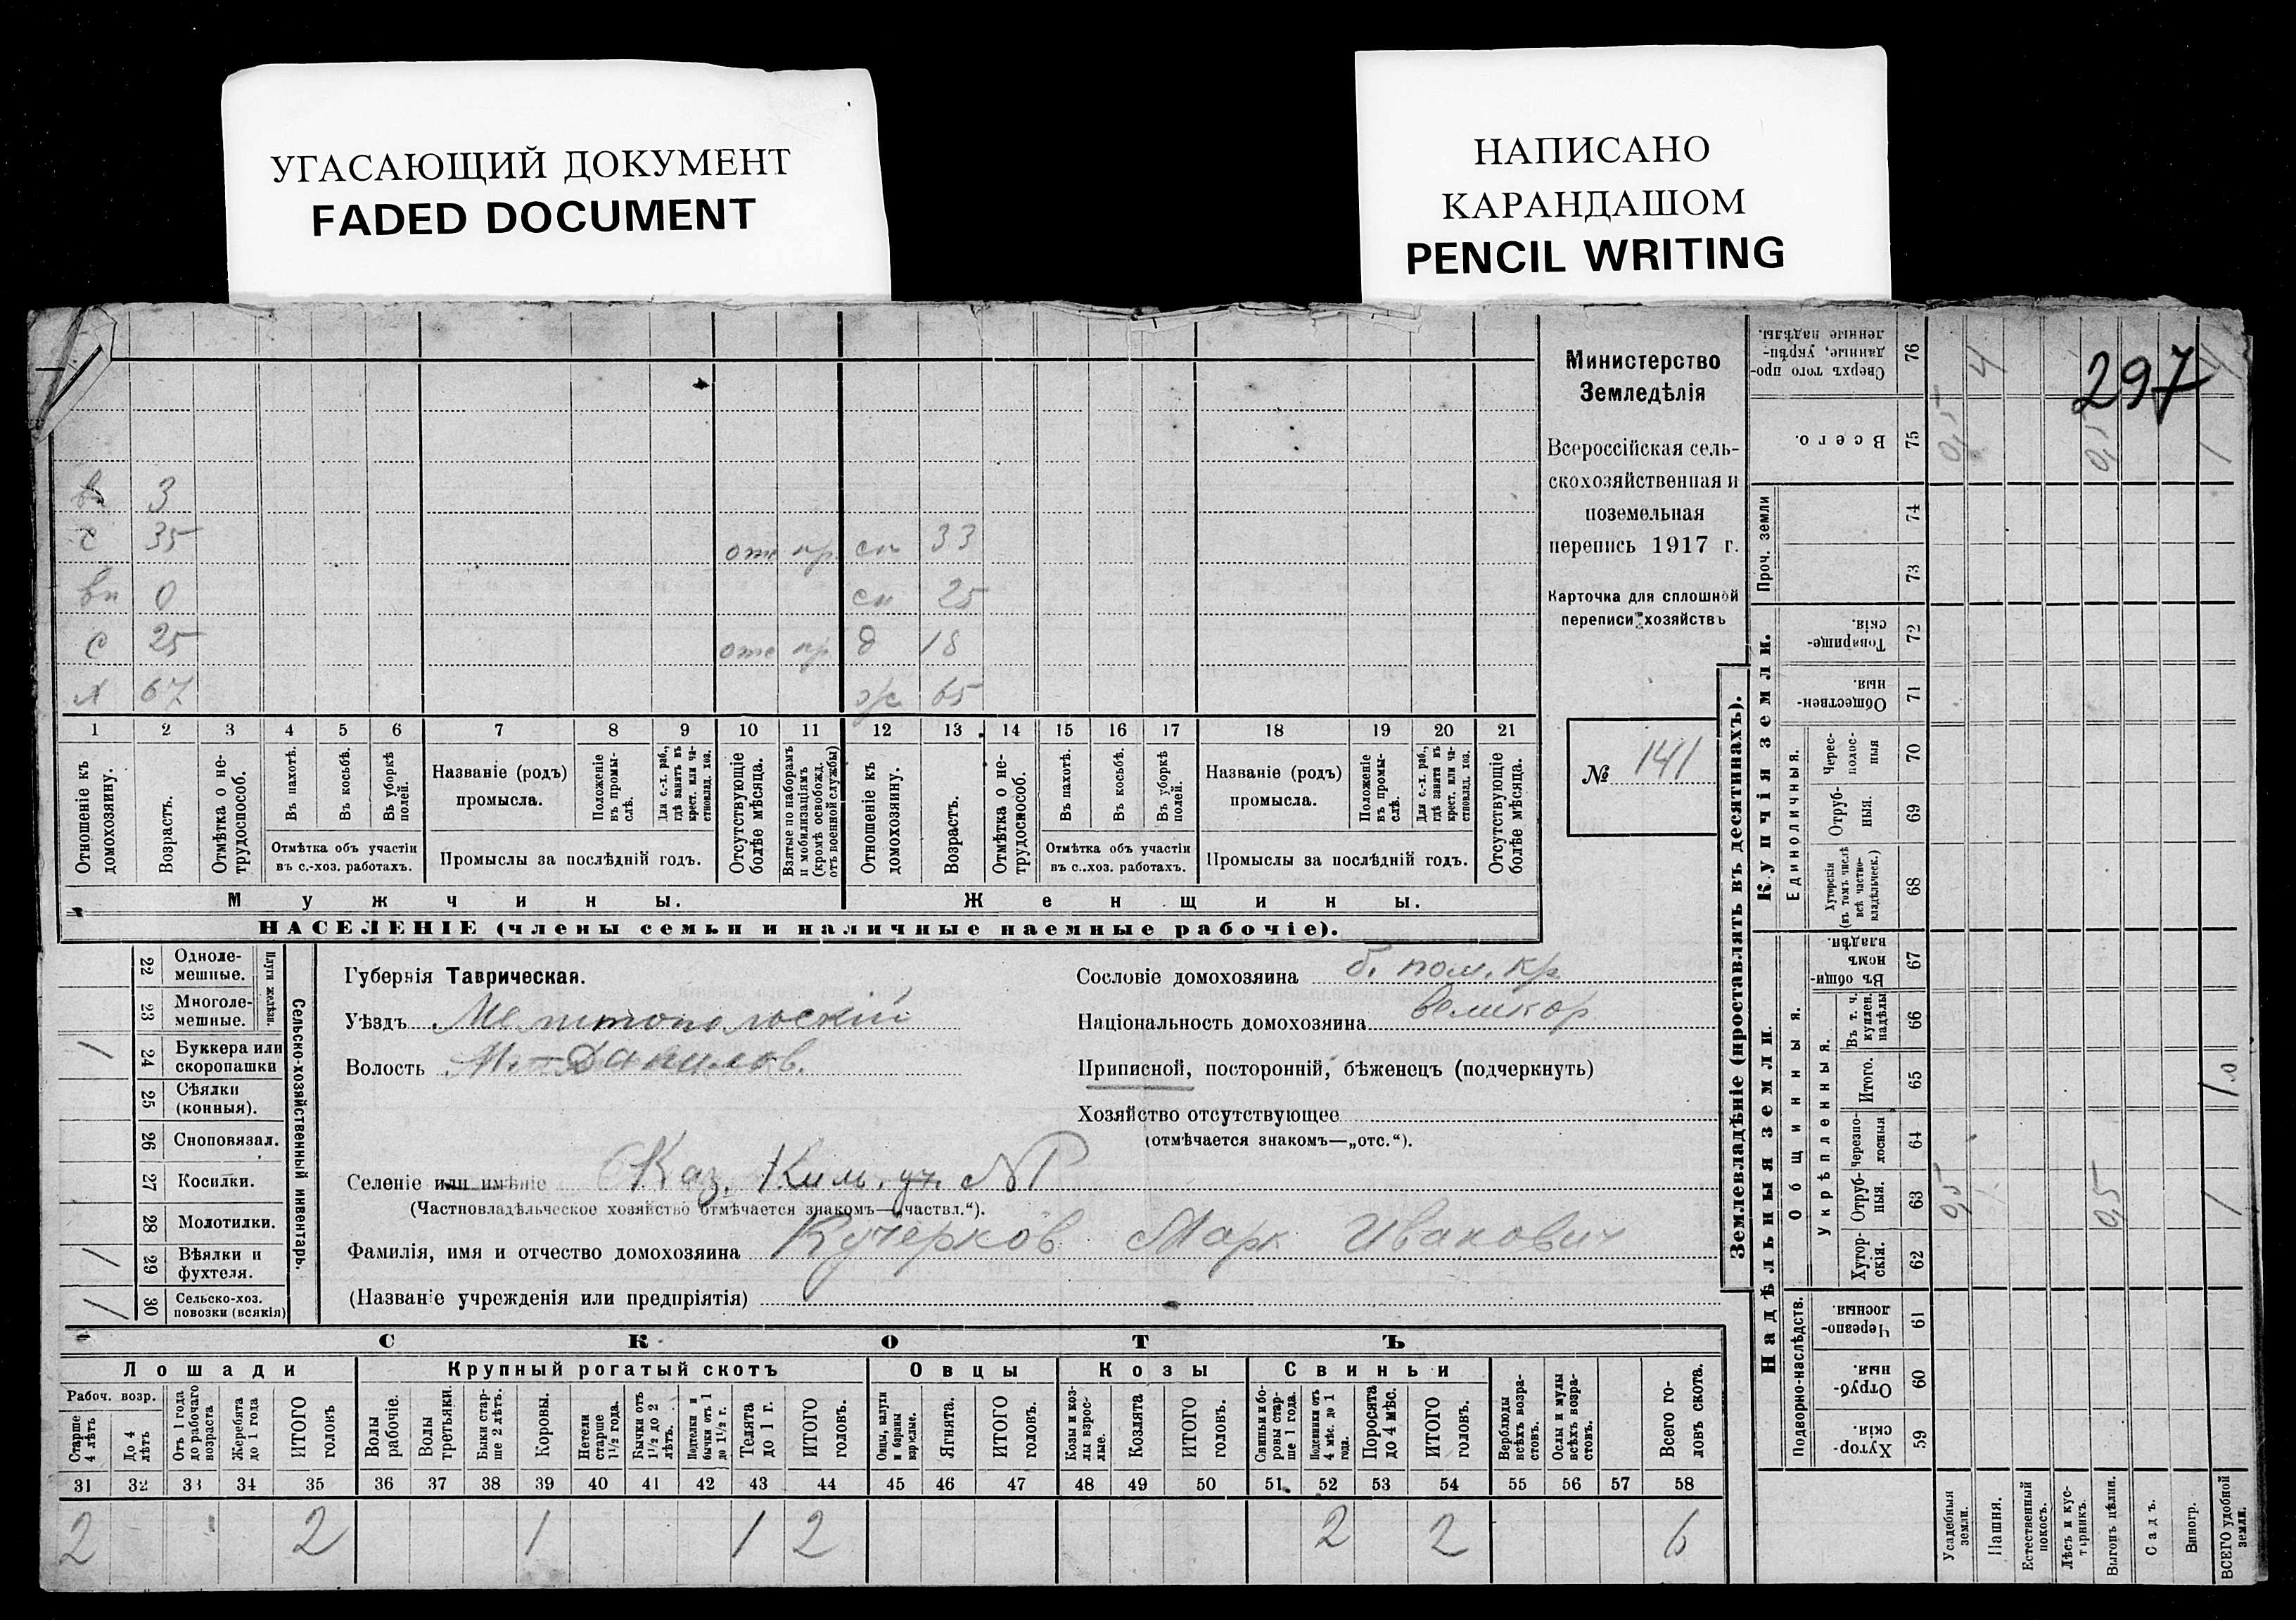 УГАСАЮЩИЙ ДОКУМЕНТ
FADED DOCUMENT
НАПИСАНО
КАРАНДАШОМ
PENCIL WRITING
297
вн 3
с 35 отс пр. сн 33
вн 0 сн 25
с 25 отс пр д 18
х 67 ж 65
1 2 3 4 5 6 7 8 9 10 11 12 13 14 15 16 17 18 19 20 21
Отношеніе къ домохозяину.
Возрастъ.
Отмѣтка о не-трудоспособ.
Въ пахотѣ.
Въ косьбѣ.
Въ уборкѣ полей.
Отмѣтка объ участіи
въ с.-хоз. работахъ.
Названіе (родъ)
промысла.
Положеніе въ промы-слѣ.
Для с.-х. раб., гдѣ занятъ въ крест. или ча-стновлад. хоз.
Промыслы за послѣдній годъ.
Отсутствующіе болѣе мѣсяца.
Взятые по наборамъ и мобилизаціямъ (кромѣ освобожд. отъ военной службы)
Отношеніе къ домохозяину.
Возрастъ.
Отмѣтка о не-трудоспособ.
Въ пахотѣ.
Въ косьбѣ.
Въ уборкѣ полей.
Отмѣтка объ участіи
въ с.-хоз. работахъ.
Названіе (родъ)
промысла.
Положеніе въ промы-слѣ.
Для с.-х. раб., гдѣ занята въ крест. или ча-стновлад. хоз.
Промыслы за послѣдній годъ.
Отсутствующіе болѣе мѣсяца.
Мужчины.
Женщины.
НАСЕЛЕНІЕ (члены семьи и наличные наемные рабочіе).
Министерство
Земледѣлія
Всероссійская сель-
скохозяйственная и
поземельная
перепись 1917 г.
Карточка для сплошной
переписи хозяйствъ
№ 141
22 Одноле-мешные.
23 Многоле-мешные.
Плуги желѣзн.
/ 24 Буккера или скоропашки
25 Сѣялки (конныя).
26 Сноповязал.
27 Косилки.
28 Молотилки.
/ 29 Вѣялки и фухтеля.
/ 30 Сельско-хоз. повозки (всякія)
Сельско-хозяйственный инвентарь.
Губернія Таврическая.
Уѣздъ Мелитопольскій
Волость М.-Данилов.
Сословіе домохозяина б. пом. кр
Національность домохозяина великор
Приписной, посторонній, бѣженецъ (подчеркнуть)
Хозяйство отсутствующее
(отмѣчается знакомъ—„отс.“).
Селеніе или имѣніе Каз. Ким. уч. №1
(Частновладѣльческое хозяйство отмѣчается знакомъ—„частвл.“).
Фамилія, имя и отчество домохозяина Кучерков Марк Иванович
(Названіе учрежденія или предпріятія)
СКОТЪ
Лошади Крупный рогатый скотъ Овцы Козы Свиньи
Рабоч. возр.
Старше 4 лѣтъ
До 4 лѣтъ
Отъ 1 года до рабочаго возраста
Жеребята до 1 года
ИТОГО головъ
Волы рабочіе.
Волы третьяки.
Быки стар-ше 2 лѣтъ.
Коровы.
Нетели старше 1½ года.
Бычки отъ 1½ до 2 лѣтъ.
Подтелки и бычки отъ 1 до 1½ г.
Телята до 1 г.
ИТОГО головъ.
Овцы, валухи и бараны взрослые.
Ягнята.
ИТОГО головъ.
Козы и коз-лы взрос-лые.
Козлята
ИТОГО головъ.
Свиньи и бо-ровы стар-ше 1 года.
Подсвинки отъ 4 мѣс. до 1 года.
Поросята до 4 мѣс.
ИТОГО головъ.
Верблюды всѣхъ возра-стовъ.
Ослы и мулы всѣхъ возра-стовъ.
Всего го-ловъ скота.
31 32 33 34 35 36 37 38 39 40 41 42 43 44 45 46 47 48 49 50 51 52 53 54 55 56 57 58
2 2 1 1 2 2 2 6
Землевладѣніе (проставлять въ десятинахъ).
Надѣльныя земли.
Купчія земли.
Проч. земли
Подворно-наслѣдств.
Общинныя.
Укрѣпленныя.
Единоличныя.
Сверхъ того про-данные, укрѣп-ленные надѣлы. 76
Всего. 75
74
73
Товарище-скія. 72
Обществен-ныя. 71
Черес-полос-ныя 70
Отруб-ныя. 69
Хуторскія (въ томъ числѣ всѣ частно-владѣльческ.) 68
Въ общин-номъ владѣн. 67
Въ т. ч. куплен. надѣлы 66
Итого. 65
Черезпо-лосныя 64
Отруб-ныя. 63
Хутор-скія. 62
Черезпо-лосныя 61
Отруб-ныя. 60
Хутор-скія. 59
4
0,5 0,5 1
0,5 0,5 1
Усадебныя земли.
Пашня.
Естественный покосъ.
Лѣсъ и кус-тарникъ.
Выгонъ цѣлин.
Садъ.
Виногр.
ВСЕГО удобной земли.